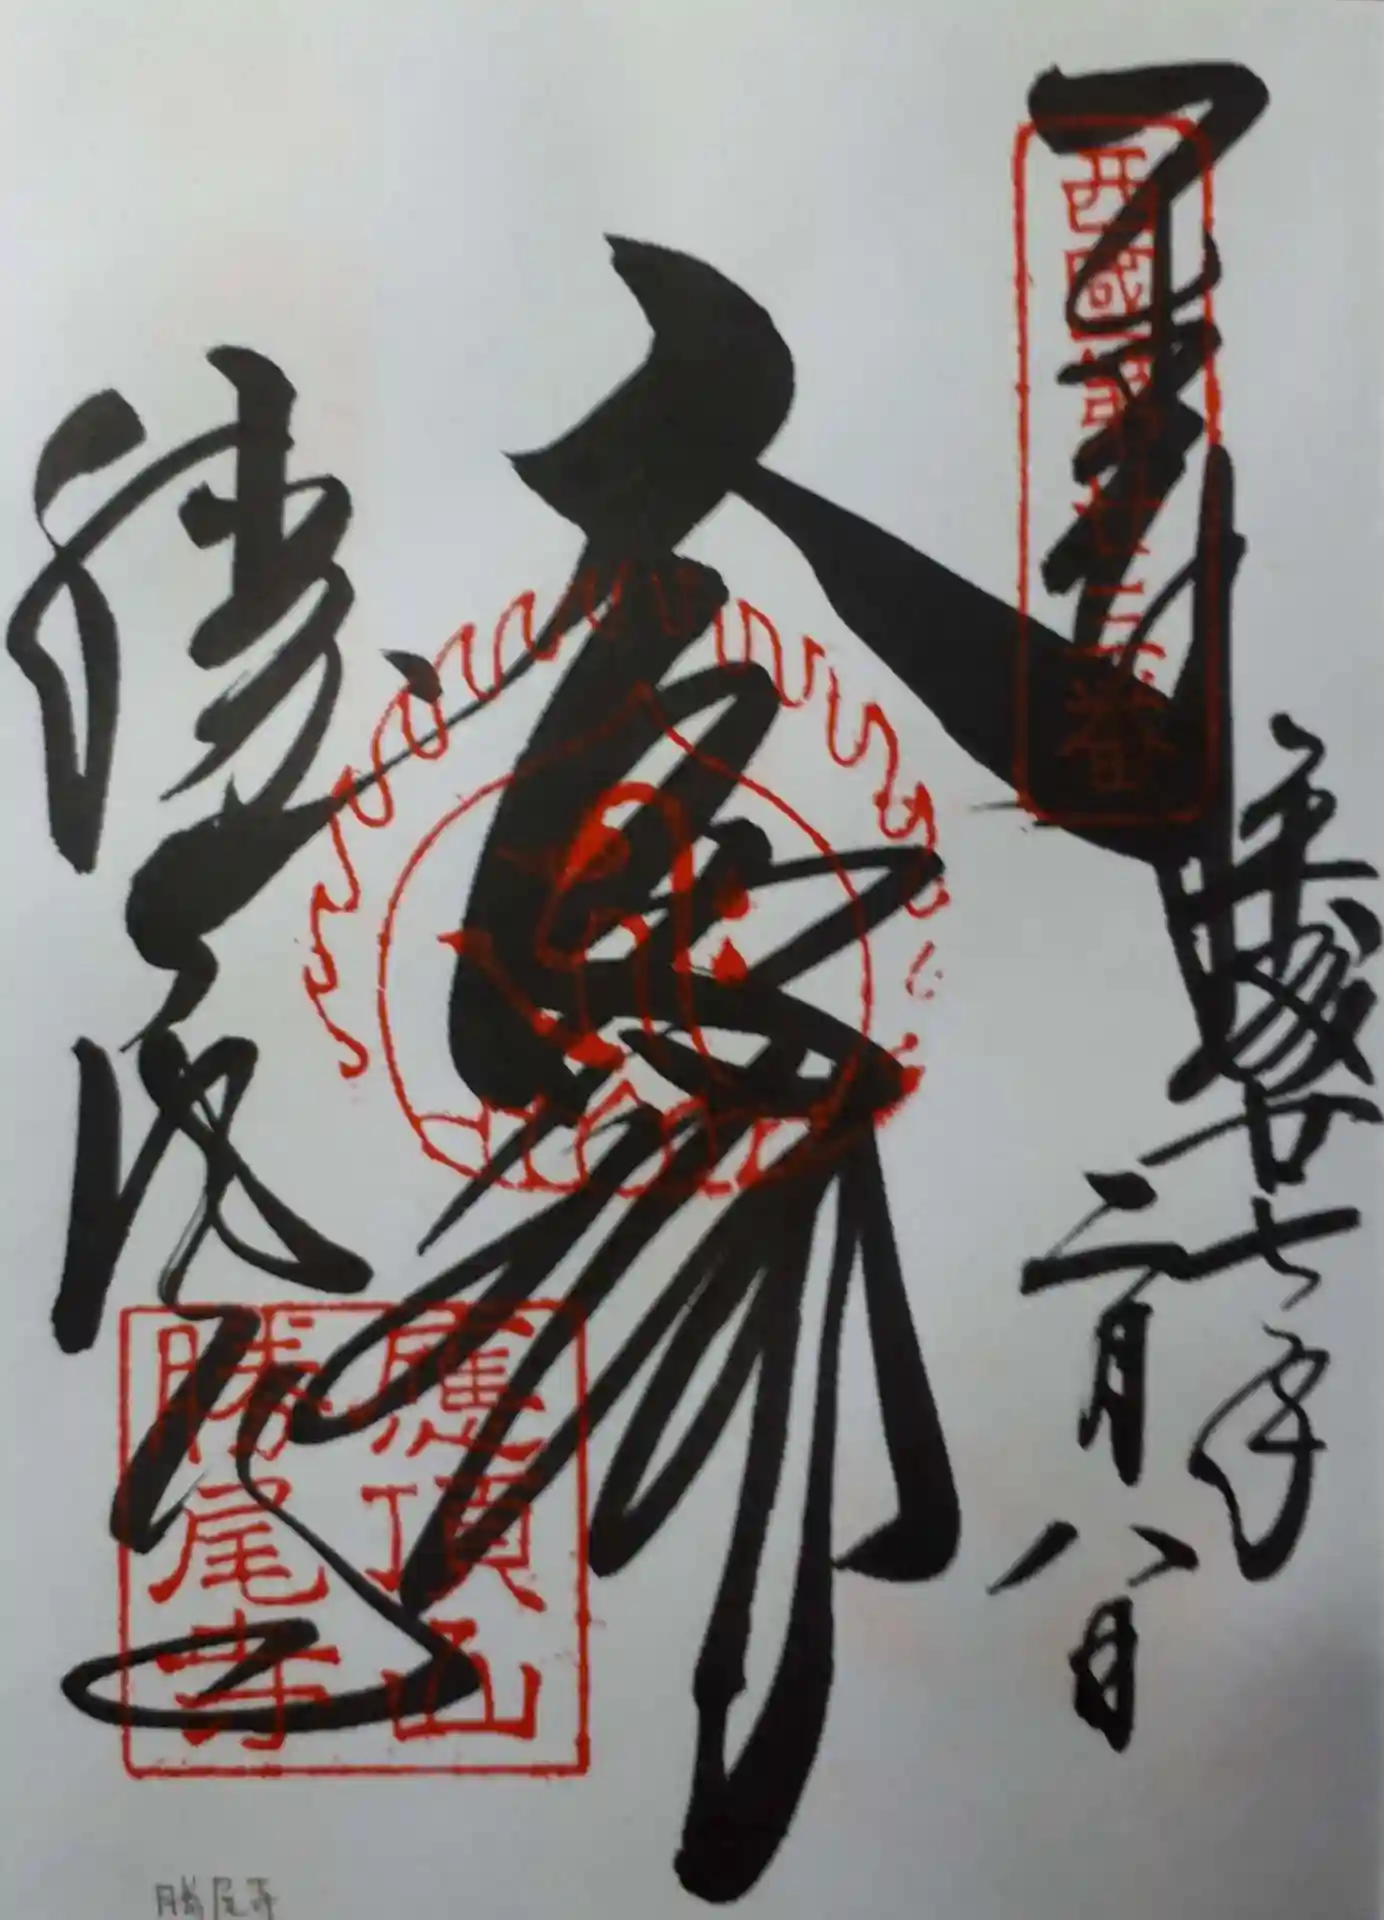 奉拝
西國第廿三番
平成廿七年
二月八日
大悲閣
勝尾寺
應頂山
勝尾寺
勝尾寺